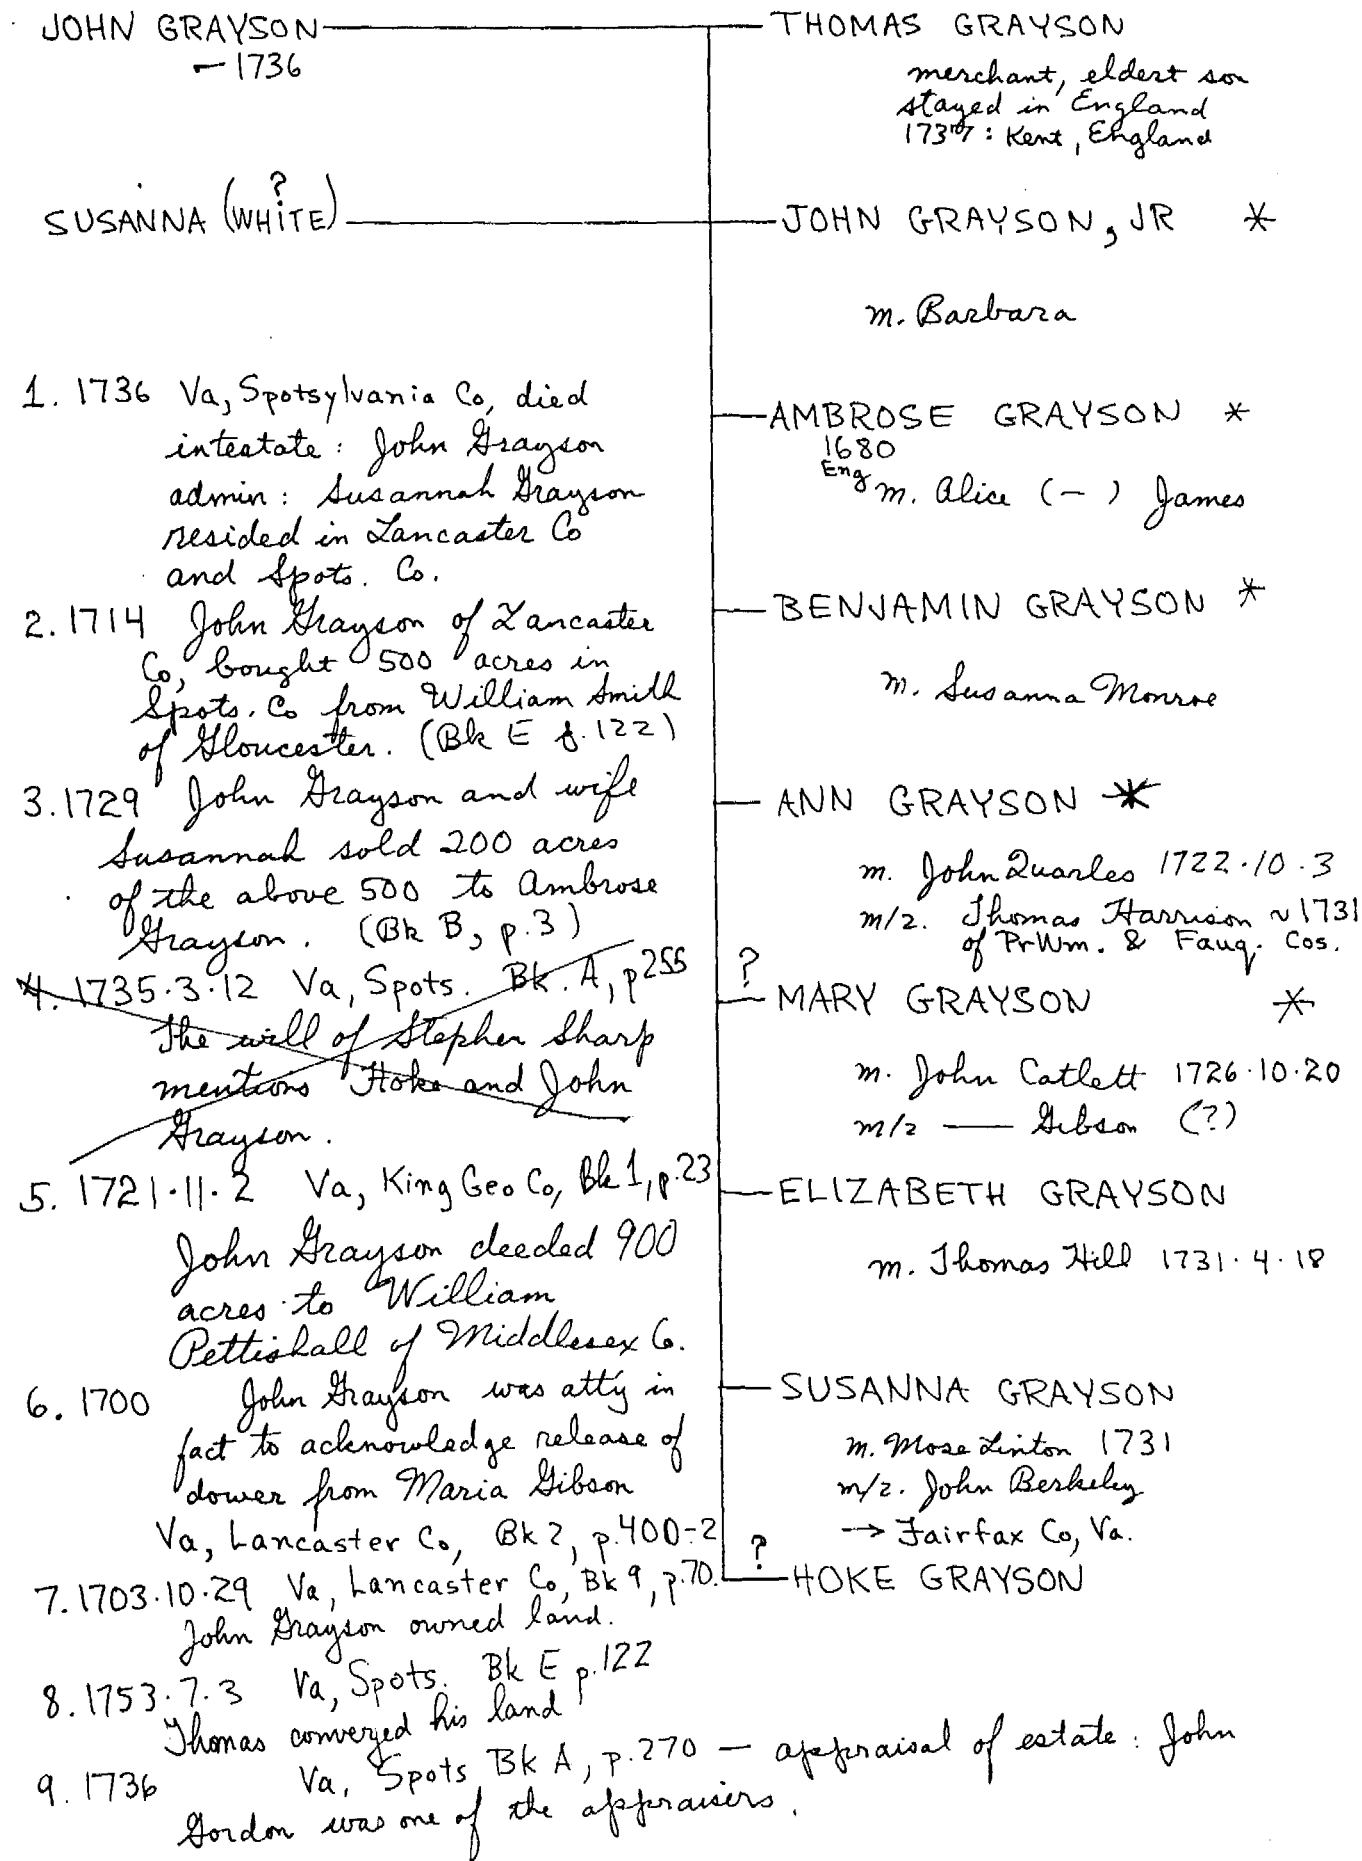 JOHN GRAYSON
– 1736
SUSANNA (WHITE)
?
1. 1736 Va, Spotsylvania Co, died
intestate: John Grayson
admin: Susannah Grayson
resided in Lancaster Co
and Spots. Co.
2. 1714 John Grayson of Lancaster
Co, bought 500 acres in
Spots. Co from William Smith
of Gloucester. (Bk E f.122)
3. 1729 John Grayson and wife
Susannah sold 200 acres
of the above 500 to Ambrose
Grayson. (Bk B, p.3)
4. 1735·3·12 Va, Spots. Bk. A, p255
The will of Stephen Sharp
mentions Hoke and John
Grayson.
5. 1721·11·2 Va, King Geo Co, Bk 1, p.23
John Grayson deeded 900
acres to William
Pettishall of Middlesex Co.
6. 1700 John Grayson was atty in
fact to acknowledge release of
dower from Maria Gibson
Va, Lancaster Co, Bk 2, p.400-2
7. 1703·10·29 Va, Lancaster Co, Bk 9, p.70.
John Grayson owned land.
8. 1753·7·3 Va, Spots. Bk E p.122
Thomas converyed his land
9. 1736 Va, Spots Bk A, p.270 — appraisal of estate: John
Gordon was one of the appraisers.
THOMAS GRAYSON
merchant, eldest son
stayed in England
1737: Kent, England
JOHN GRAYSON, JR *
m. Barbara
AMBROSE GRAYSON *
1680
Eng m. Alice (–) James
BENJAMIN GRAYSON *
m. Susanna Monroe
ANN GRAYSON *
m. John Quarles 1722·10·3
m/2. Thomas Harrison ~1731
of PrWm. & Fauq. Cos.
? MARY GRAYSON *
m. John Catlett 1726·10·20
m/2 — Gibson (?)
ELIZABETH GRAYSON
m. Thomas Hill 1731·4·18
SUSANNA GRAYSON
m. Mose Linton 1731
m/2. John Berkeley
→ Fairfax Co, Va.
? HOKE GRAYSON